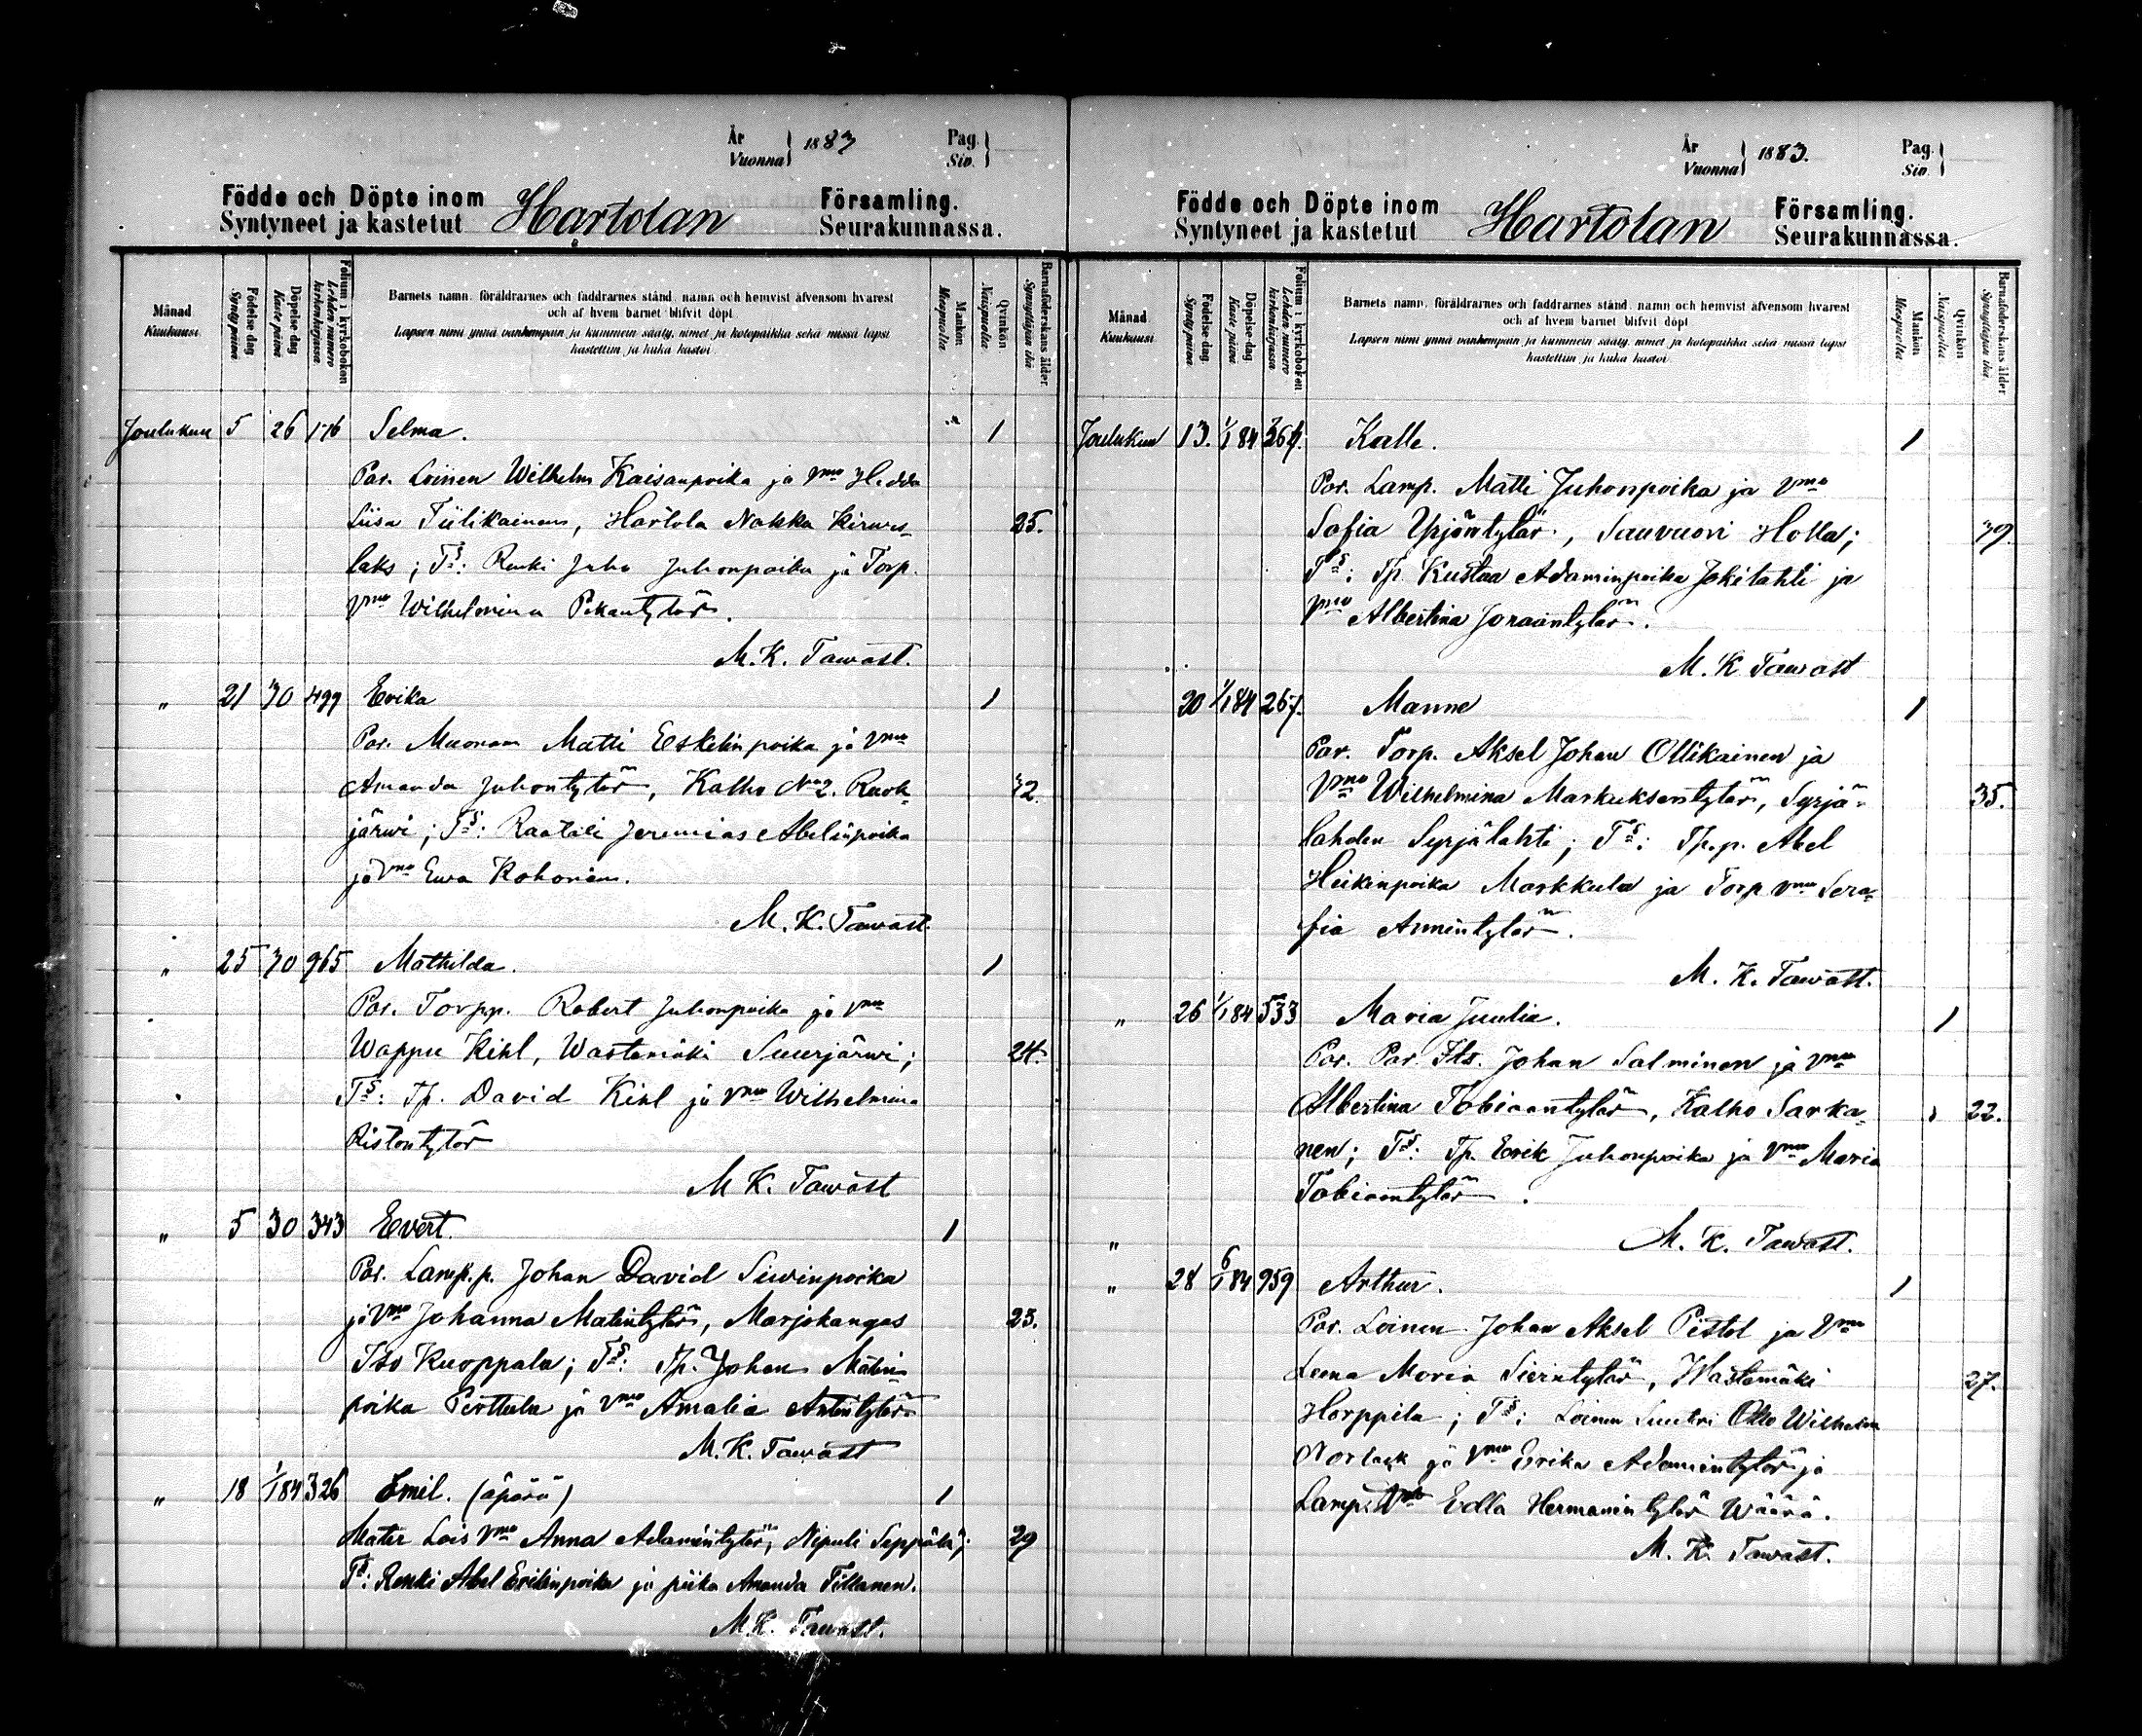 År
Vuonna } 1883 Pag. Siv. }
Födde och Döpte inom Hartolan Församling.
Syntyneet ja kastetut Seurakunnassa.
Månad Kuukausi
Födelse-dag Synty päivä
Döpelse-dag Kaste päivä
Folium i kyrkoboken Lehden numero kirkonkirjassa
Barnets namn, föräldrarnes och faddrarnes stånd, namn och hemvist äfvensom hvarest
och af hvem barnet blifvit döpt
Lapsen nimi ynnä vanhempain ja kummein sääty, nimet ja kotopaikka sekä missä lapsi
kastettiin ja kuka kastoi.
Mankön Miespuolia
Qvinkön Naispuolia
Barnaföderskans ålder Synnyttäjän ikä
Joulukuu 5 26 176 Selma. 1
Par. Loinen Wilhelm Kaisanpoika ja Vmo Hedda
Liisa Tiilikainen, Hartola Nokka 25.
laks; Ts: Renki Juho Juhonpoika ja Torp.
Vmo Wilhelmina Pekantytär.
M. K. Tawast.
„ 21 30 499 Erika 1
Par. Muonam Matti Eskelinpoika ja Vmo
Amanda Juhontytär, Kalho No 2. Ruok- 32.
järwi; Ts: Raatali Jeremias Abelinpoika
ja Vmo Ewa Kohonen.
M. K. Tawast.
„ 25 30 965 Mathilda. 1
Par. Torpp. Robert Juhonpoika ja Vmo
Wappu Kihl, Wastamäki Suurjärwi; 24.
Ts: Tp. David Kihl ja Vmo Wilhelmina
Ristontytär
M K. Tawast
„ 5 30 343 Evert. 1
Par. Lamp.p. Johan David Siwinpoika
ja Vmo Johanna Matintytär, Marjokangas 23.
Iso Kuoppala; Ts: Tp. Johan Matin-
poika Perttula ja Vmo Amalia Antintytär
M. K. Tawast
„ 18 1/1 84 326 Emil. (äpärä) 1
Mater Lois Vmo Anna Adamintytär, Nipuli Seppälä; 29
Ts: Renki Abel Erikinpoika ja piika Amanda Tillanen.
M K. Tawast.
År
Vuonna } 1883. Pag. Siv. }
Födde och Döpte inom Hartolan Församling.
Syntyneet ja kastetut Seurakunnassa.
Månad Kuukausi
Födelse-dag Synty päivä
Döpelse-dag Kaste päivä
Folium i kyrkoboken Lehden numero kirkonkirjassa
Barnets namn, föräldrarnes och faddrarnes stånd, namn och hemvist äfvensom hvarest
och af hvem barnet blifvit döpt
Lapsen nimi ynnä vanhempain ja kummein sääty, nimet ja kotopaikka sekä missä lapsi
kastettiin ja kuka kastoi.
Mankön Miespuolia
Qvinkön Naispuolia
Barnaföderskans ålder Synnyttäjän ikä
Joulukuu 13. 1/1 84 Kalle. 1
Par. Lamp. Matti Juhonpoika ja Vmo
Sofia Yrjöntytär, Sauvuori Holla; 39.
Ts: Tp. Kustaa Adaminpoika Jokitahti ja
Vmo Albertina Joraantytär.
M. K Tawast
20 1/1 84 267. Manne 1
Par. Torp. Aksel Johan Ollikainen ja
Vmo Wilhelmina Markuksentytär, Syrjä- 35.
lahden Syrjälahti; Ts: Tp.p. Abel
Heikinpoika Markkula ja Torp Vmo Sera-
fia Armintytär.
M. K. Tawast.
„ 26 1/1 84 533 Maria Juulia. 1
Par. Par. Its. Johan Salminen ja Vmo
Albertina Tobiaantytär, Kalho Sarka- 22.
nen; Ts: Tp. Erik Juhonpoika ja Vmo Maria
Tobiaantytär.
„ M. K. Tawast.
„ 28 6/1 84 959 Arthur. 1
Par. Loinen Johan Aksel Pistol ja Vmo
Leena Maria Sierintytär, Wastamäki 27.
Horppila; Ts: Loinen Suutri Otto Wilhelm
Norlack ja Vmo Erika Adamintytär ja
Lamp. Vmo Edla Hermanintytär Wäärä.
M. K. Tawast.